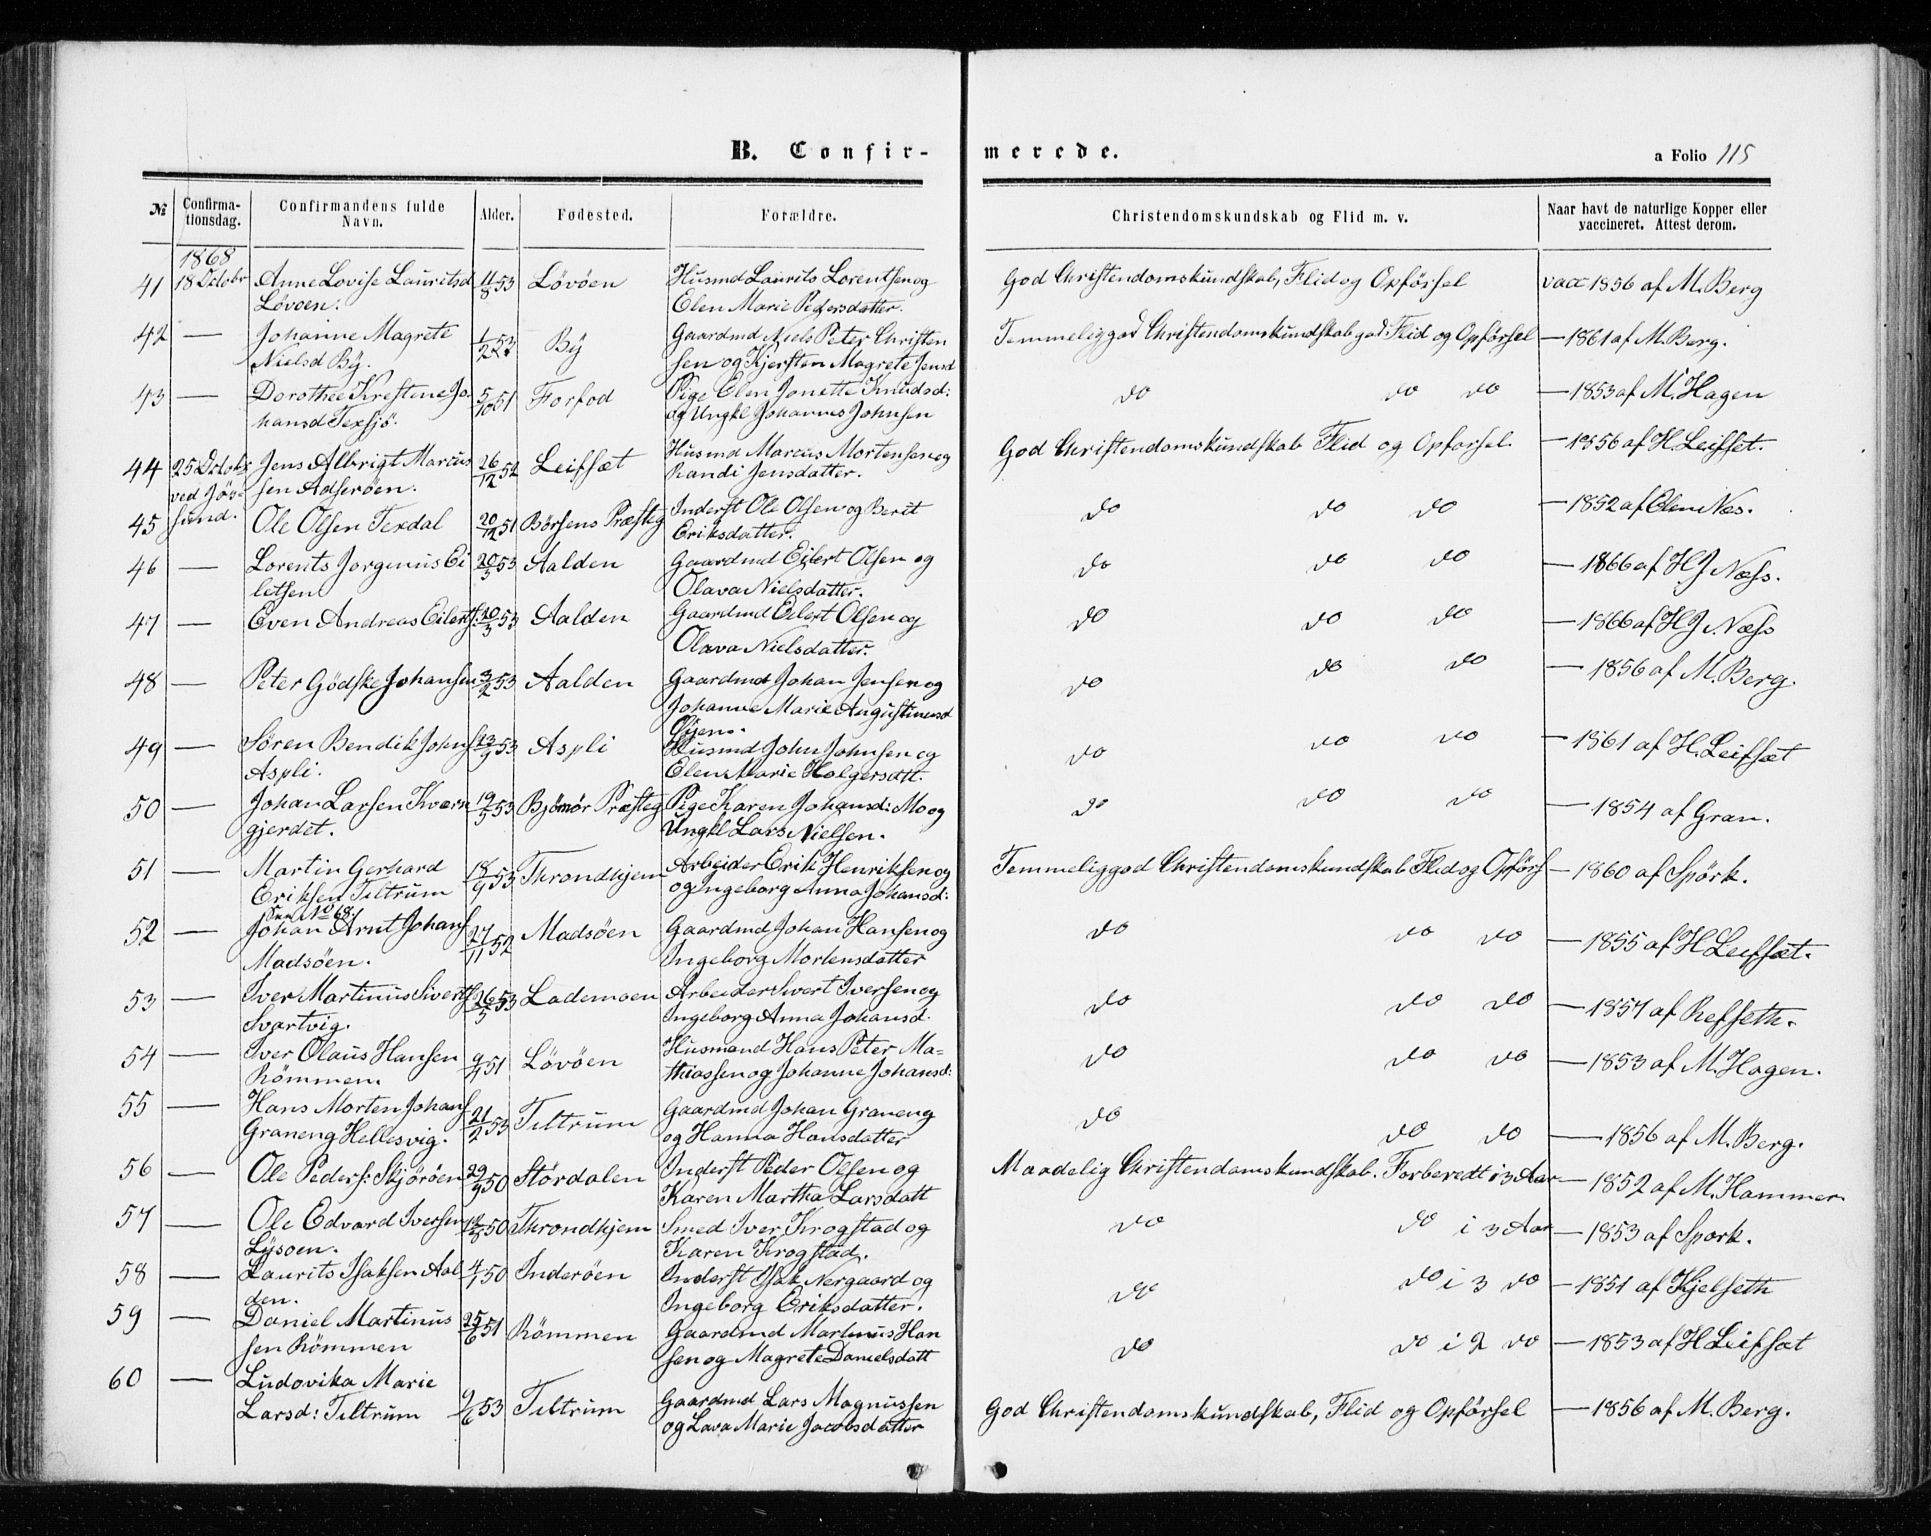 B. Confir-
merede.
a Folio 115
№ Confirma-tionsdag. Confirmandens fulde Navn. Alder. Fødested. Forældre. Christendomskundskab og Flid m. v. Naar havt de naturlige Kopper eller vaccineret. Attest derom.
1868
41 18 Octobr Anne Lovise Lauritsd 11/8 53 Lövöen Husmd Laurits Lorentsen og God Christendomskundskab, Flid og Opförsel vacc 1856 af M. Berg
Lövoen. Elen Marie Pedersdatter.
42 — Johanne Magrete 1/2 53 By Gaardmd Niels Peter Christen Temmelig god Christendomskundskab god Flid og Opförsel — 1861 af M. Berg.
Nielsd By. sen og Kjersten Magrete Jensd
43 — Dorothee Krestene Jo 5/10 51 Forfod Pige Elen Jonette Knudsd: do do do — 1853 af M. Hagen
hansd Texsjö. og Ungkl Johannes Johnsen
44 25 Octobr Jens Albrigt Marcus 26/12 52 Leifsæt Husmd Marcus Mortensen og God Christendomskundskab Flid og Opforsel. — 1856 af H. Leifset.
ved Jös- sen Adseröen. Randi Jensdatter.
45 sund. Ole Olsen Texdal 20/12 51 Börsens Præsteg Inderst Ole Olsen og Berit do do do — 1852 af Olen Næs.
Eriksdatter.
46 — Lorents Jorgenus Ei 20/3 53 Aalden Gaardmd Eilert Olsen og do do do — 1866 af H J Næss.
letsen Olava Nielsdatter.
47 — Even Andreas Eilerts. 20/3 53 Aalden Gaardmd Eilert Olsen og do do do — 1866 af H J Næss
Olava Nielsdatter.
48 — Peter Gödske Johansen 3/2 53 Aalden Gaardmd Johan Jensen og do do do — 1856 af M. Berg.
Johanne Marie Augustinusd
Öyen.
49 — Sören Bendik Johns 23/9 53 Aspli Husmd John Johnsen og do do do — 1861 af H. Leifsæt
Aspli. Elen Marie Holgersdtt.
50 — Johan Larsen Kværn 19/5 53 Bjömör Præsteg Pige Karen Johansd: Mo og do do do — 1854 af Gran.
gjerdet. Ungkl Lars Nielsen.
51 — Martin Gerhard 18/9 53 Throndhjem Arbeider Erik Henriksen og Temmelig god Christendomskundskab Flid og Opförs — 1860 af Spörk.
Eriksen Tiltrum og Ingeborg Anna Johansd:
No 68.
52 — Johan Arnt Johans 27/11 52 Madsöen Gaardmd Johan Hansen og do do do — 1855 af H Leifsæt.
Madsöen. Ingeborg Mortensdatter
53 — Iver Martinus Siverts 26/5 53 Lademoen Arbeider Sivert Iversen og do do do — 1857 af Refseth.
Svartvig. Ingeborg Anna Johansd.
54 — Iver Olaus Hansen 51 Lövöen Husmand Hans Peter Ma- do do do — 1853 af M. Hagen.
Römmen. thiassen og Johanne Johansd:
55 — Hans Morten Johans 21/2 53 Tiltrum Gaardmd Johan Graneng do do do — 1856 af M. Berg.
Graneng Hellesvig. og Hanna Hansdatter
56 — Ole Peders: Skjöröen 50 Stördalen Inderst Peder Olsen og Maadelig Christendomskundskab. Forberedt i 3 Aar — 1852 af M. Hammer
Karen Martha Larsdatt
57 — Ole Edvard Iversen 50 Throndhjem Smed Iver Krogstad og do do i 3 Aar — 1853 af Spork.
Lysoen. Karen Krogstad.
58 — Laurits Isaksen Aal 50 Inderöen Inderst Isak Nergaard og do do i 3 do — 1851 af Kjelseth
den. Ingeborg Eriksdatter.
59 — Daniel Martinus 25/6 51 Römmen Gaardmd Martinus Han do do i 2 do — 1853 af H Leifsat
sen Römmen sen og Magrete Danielsdatt
60 — Ludovika Marie
Larsd: Tiltrum 9/6 53 Tiltrum Gaardmd Lars Magnussen God Christendomskundskab, Flid og Opförsel — 1856 af M. Berg.
og Lava Marie Jacobsdatter